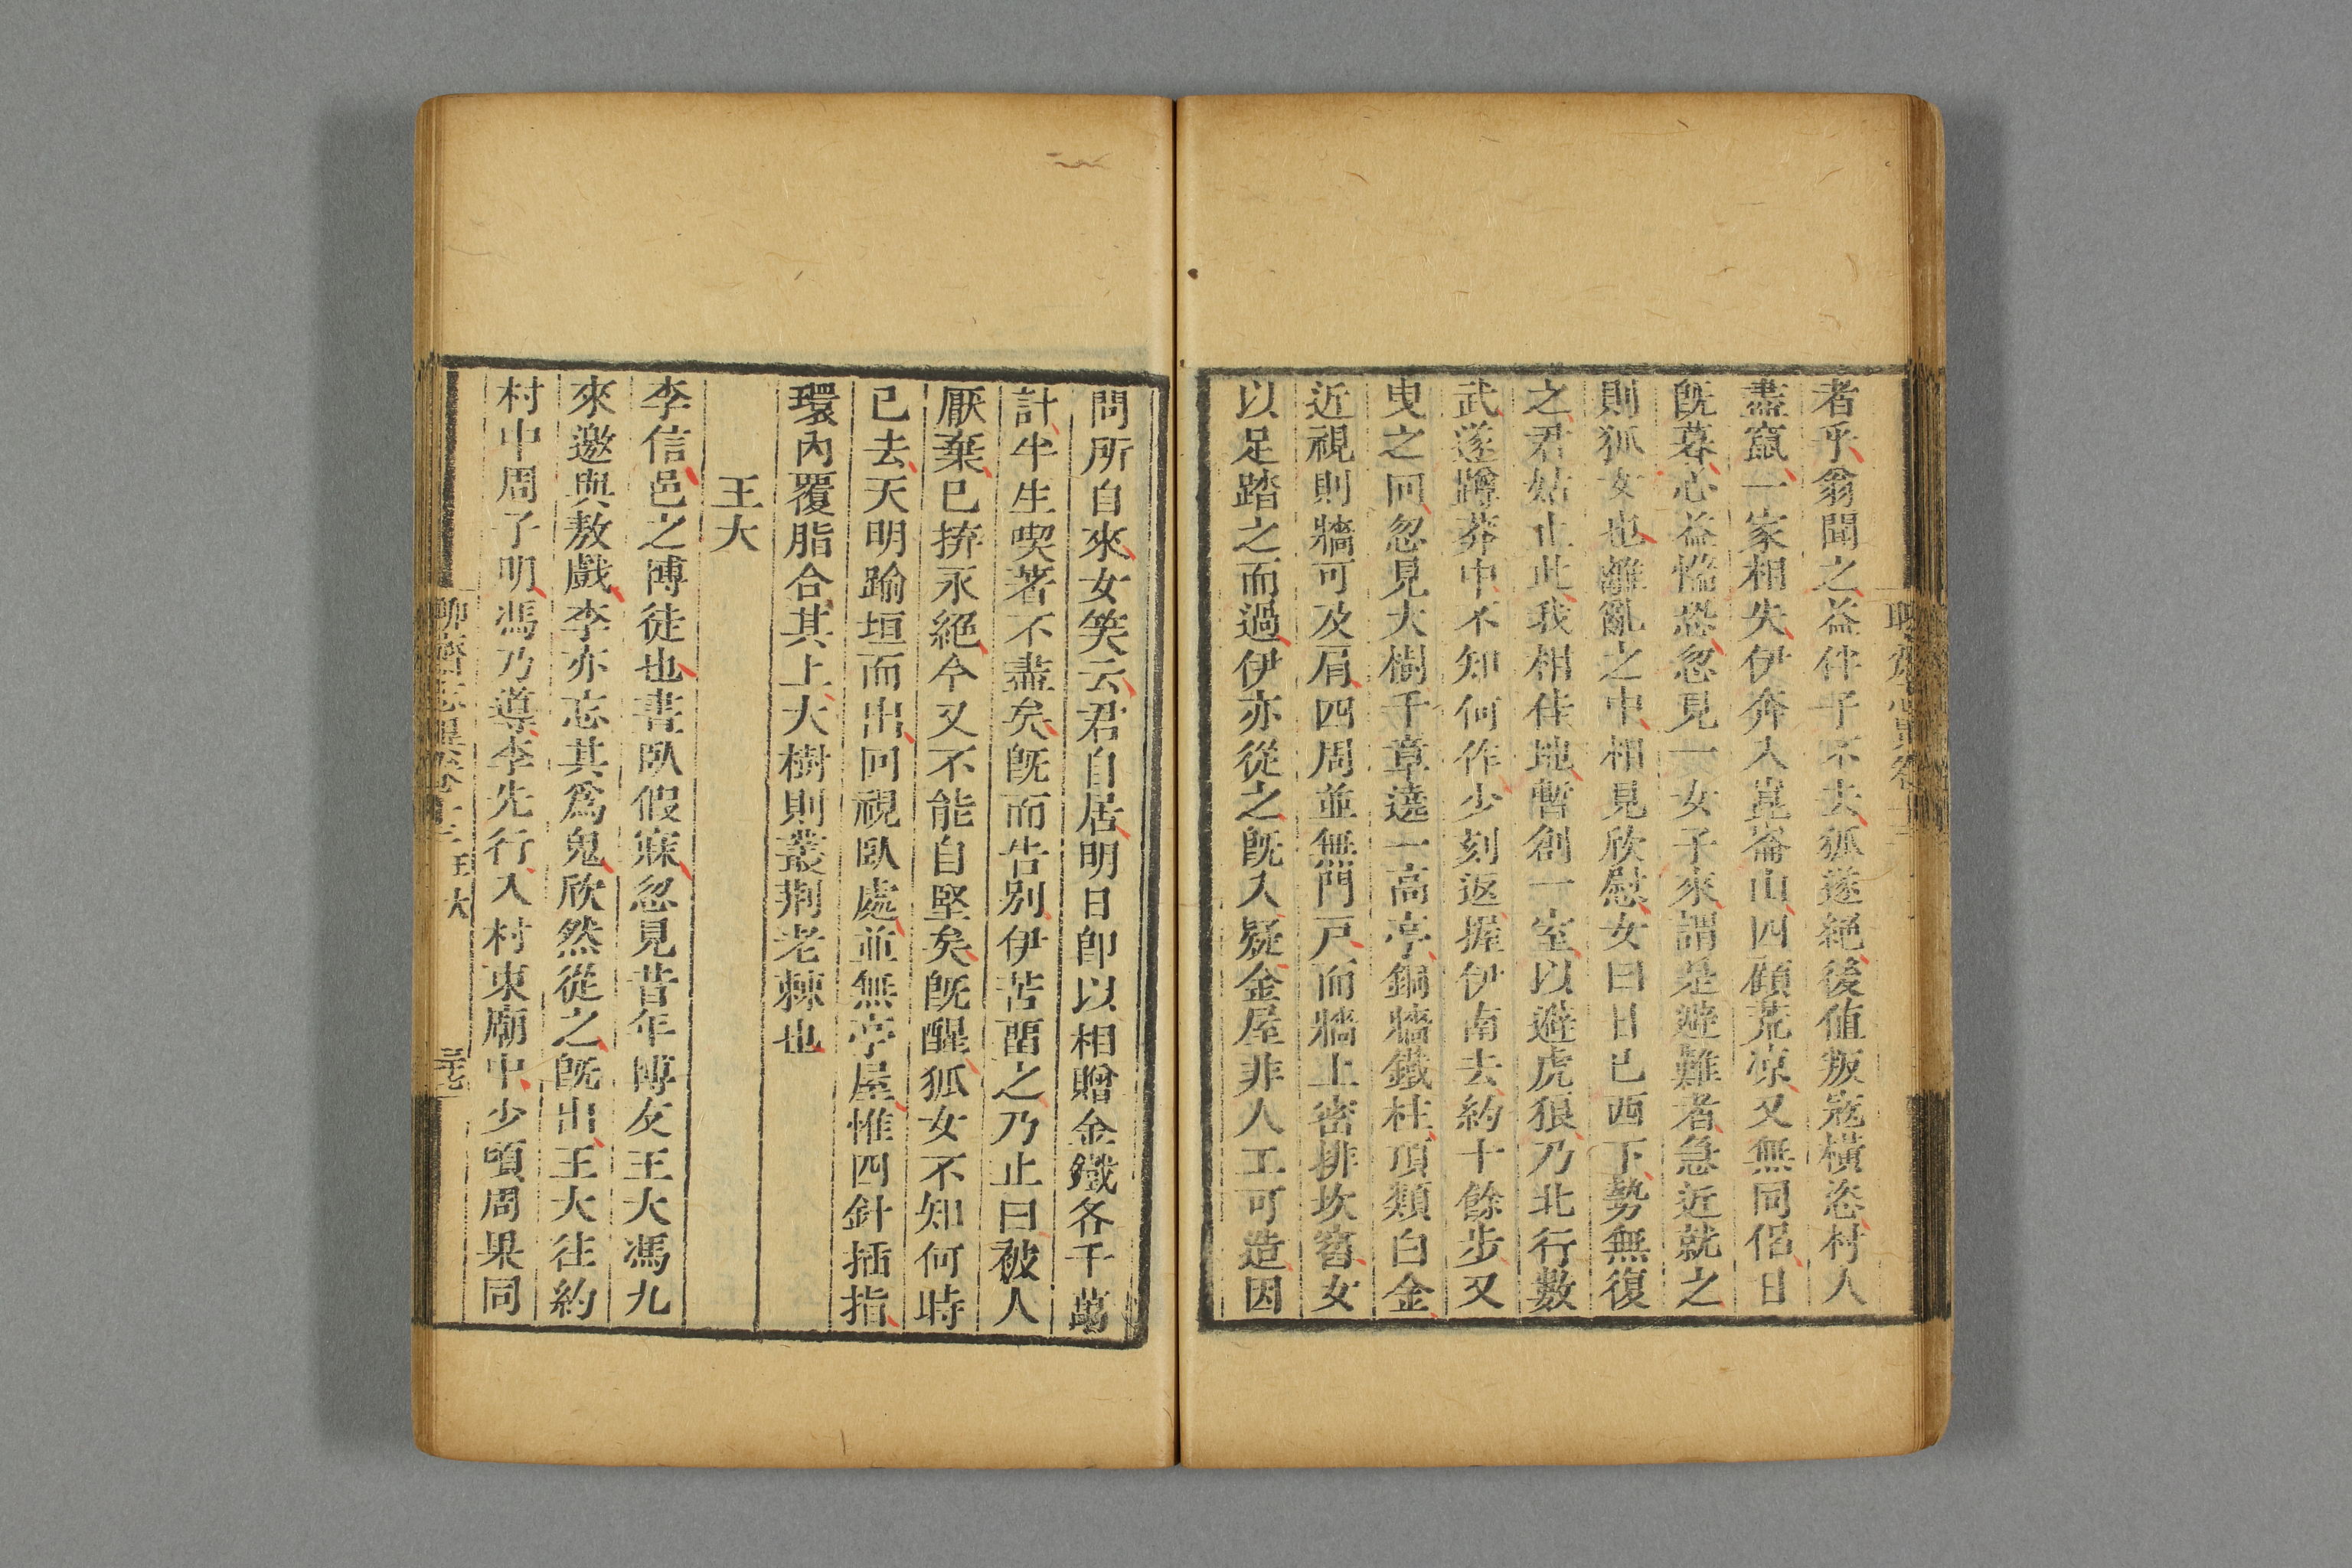 者乎翁聞之益伴子不去狐遂絕後值叛寇橫恣村人
盡竄一家相失伊奔入崑崙山四顧荒凉又無同侶日
旣暮心益慌恐忽見一女子來謂是避難者急近就之
則狐女也離亂之中相見欣慰女曰日已西下勢無復
之君姑止此我相佳地暫創一室以避虎狼乃北行數
武遂蹲莽中不知何作少刻返握伊南去約十餘步又
曳之回忽見大樹千章遶一高亭銅牆鐵柱頂類白金
近視則牆可及肩四周並無門戸而牆上密排坎窞女
以足踏之而過伊亦從之旣入疑金屋非人工可造因
問所自來女笑云君自居明日卽以相贈金鐵各千萬
計半生喫著不盡矣旣而告别伊苦畱之乃止曰被人
厭棄已拚永絕今又不能自堅矣旣醒狐女不知何時
已去天明踰垣而出回視臥處並無亭屋惟四針插指
環內覆脂合其上大樹則叢荆老棘也
王大
李信邑之博徒也晝臥假寐忽見昔年博友王大馮九
來邀與敖戲李亦忘其爲鬼欣然從之旣出王大往約
村中周子明馮乃導李先行入村東廟中少頃周果同
聊齋志異卷十三 王大 三七